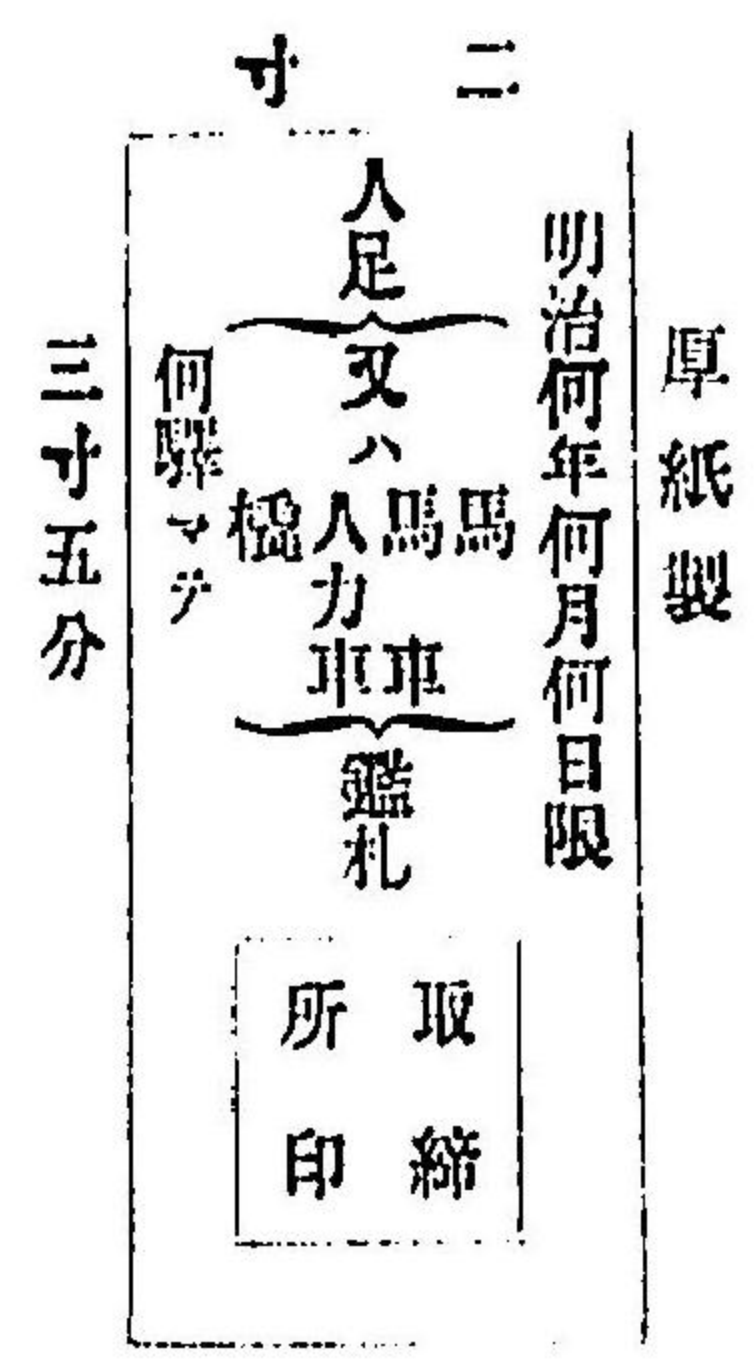 二寸
厚紙製
明治何年何月何日限
人足
又ハ
馬車
馬
人力車
橇
鑑札
何驛マテ
取締
所印
三寸五分